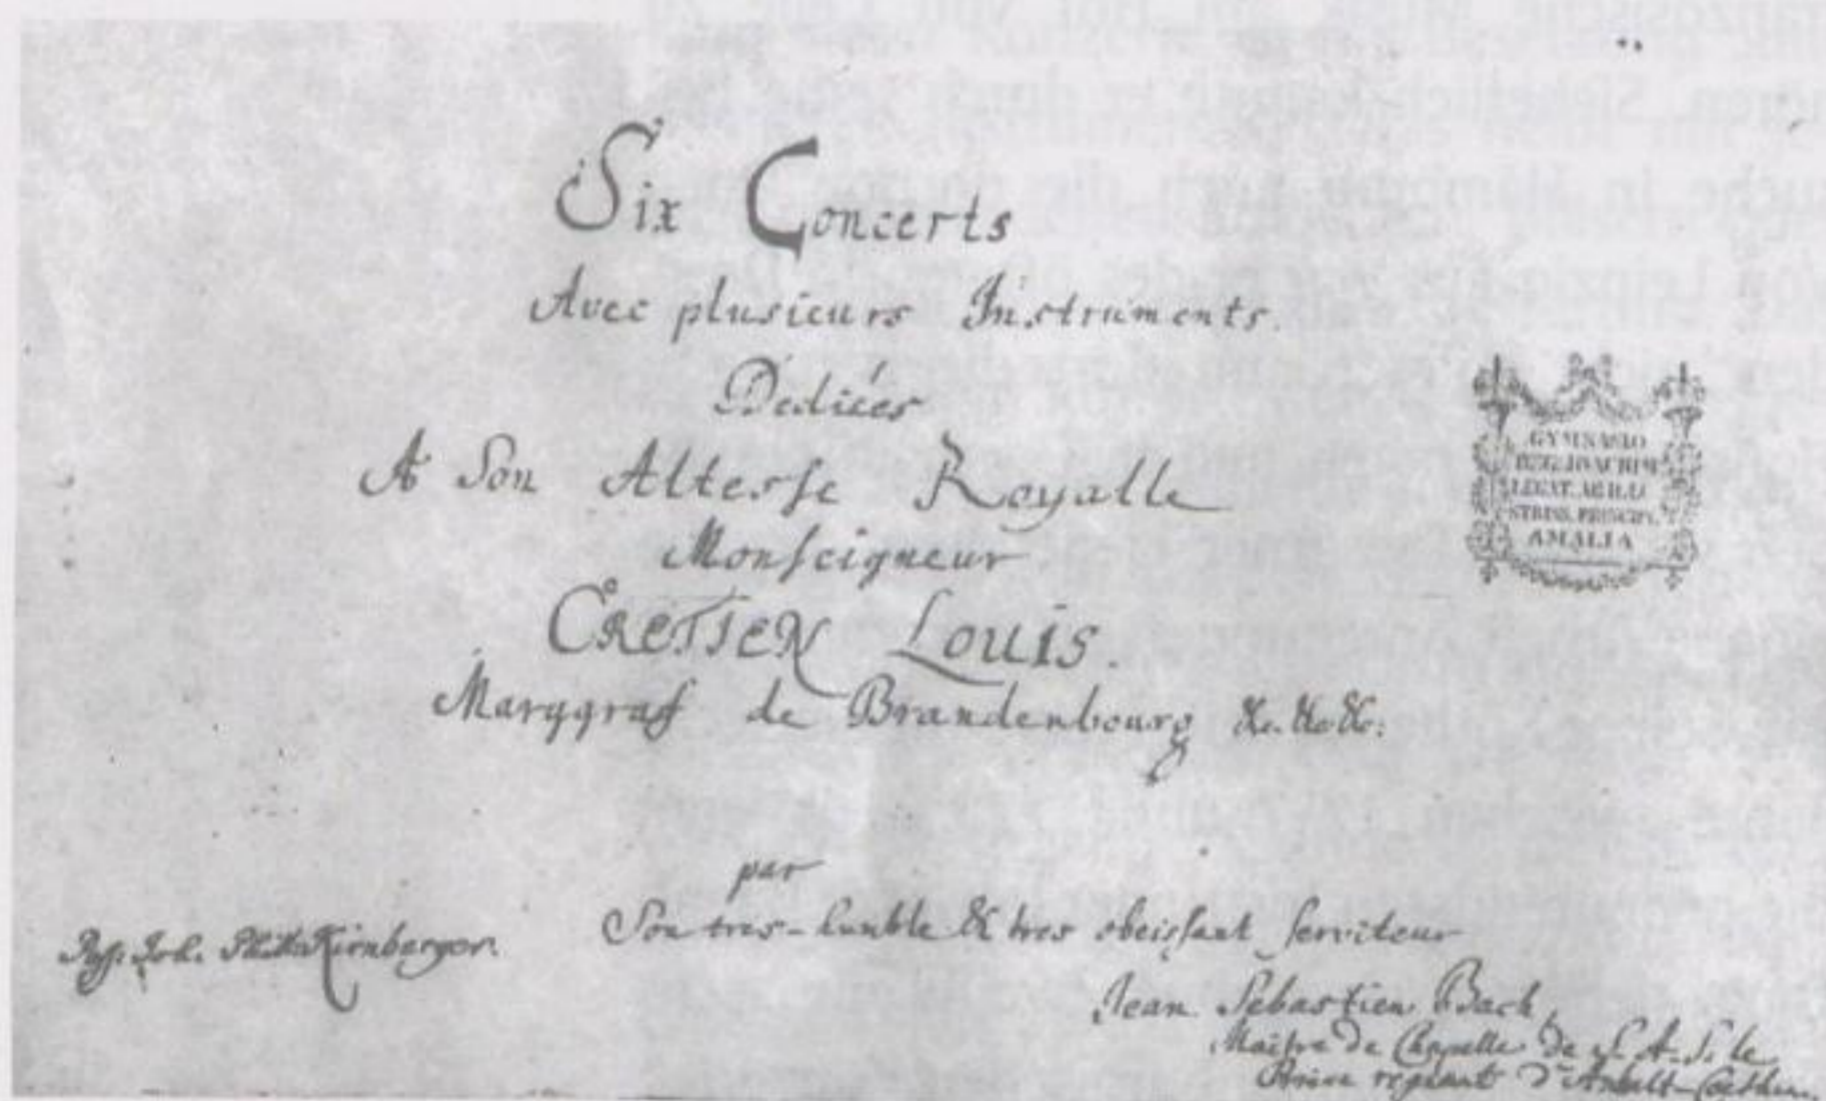 Six Concerts
Avec plusieurs Instruments.
Dediées
A Son Altesse Royalle
Monseigneur
CRETIEN LOUIS.
Marggraf de Brandenbourg &c. &c. &c:
GYMNASIO
REG. JOACHIM
LEGAT. AB ILLU
STRISS. PRINCIP.
AMALIA
par
Son tres-humble & tres obeissant serviteur
Joh. Kirnberger.
Jean Sebastien Bach,
Maitre de Chapelle de S. A. S. le
Prince regnant d'Anhalt-Coethen.